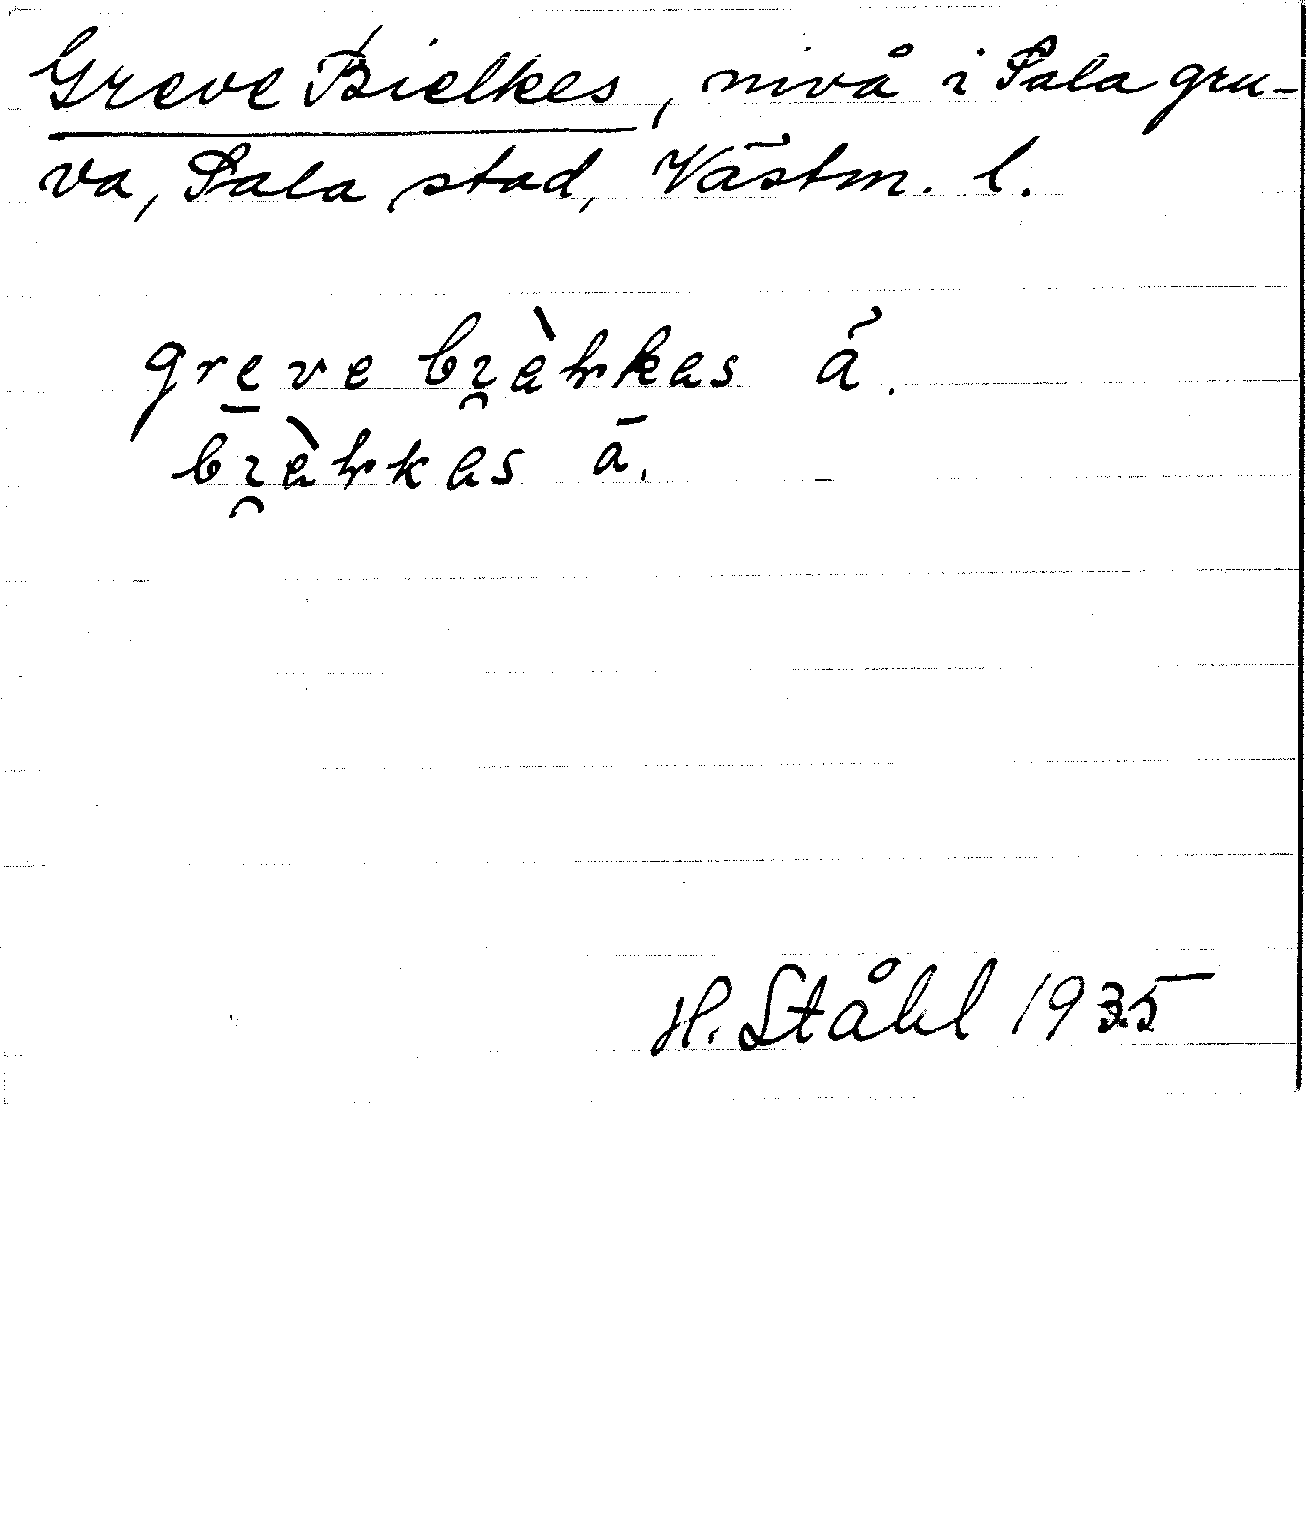 Greve Bielkes, nivå i Sala gru-
va, Sala stad, Västm. l.
greve bi̯èlkas ā.
bi̯èlkas ā.
H. Ståhl 1935